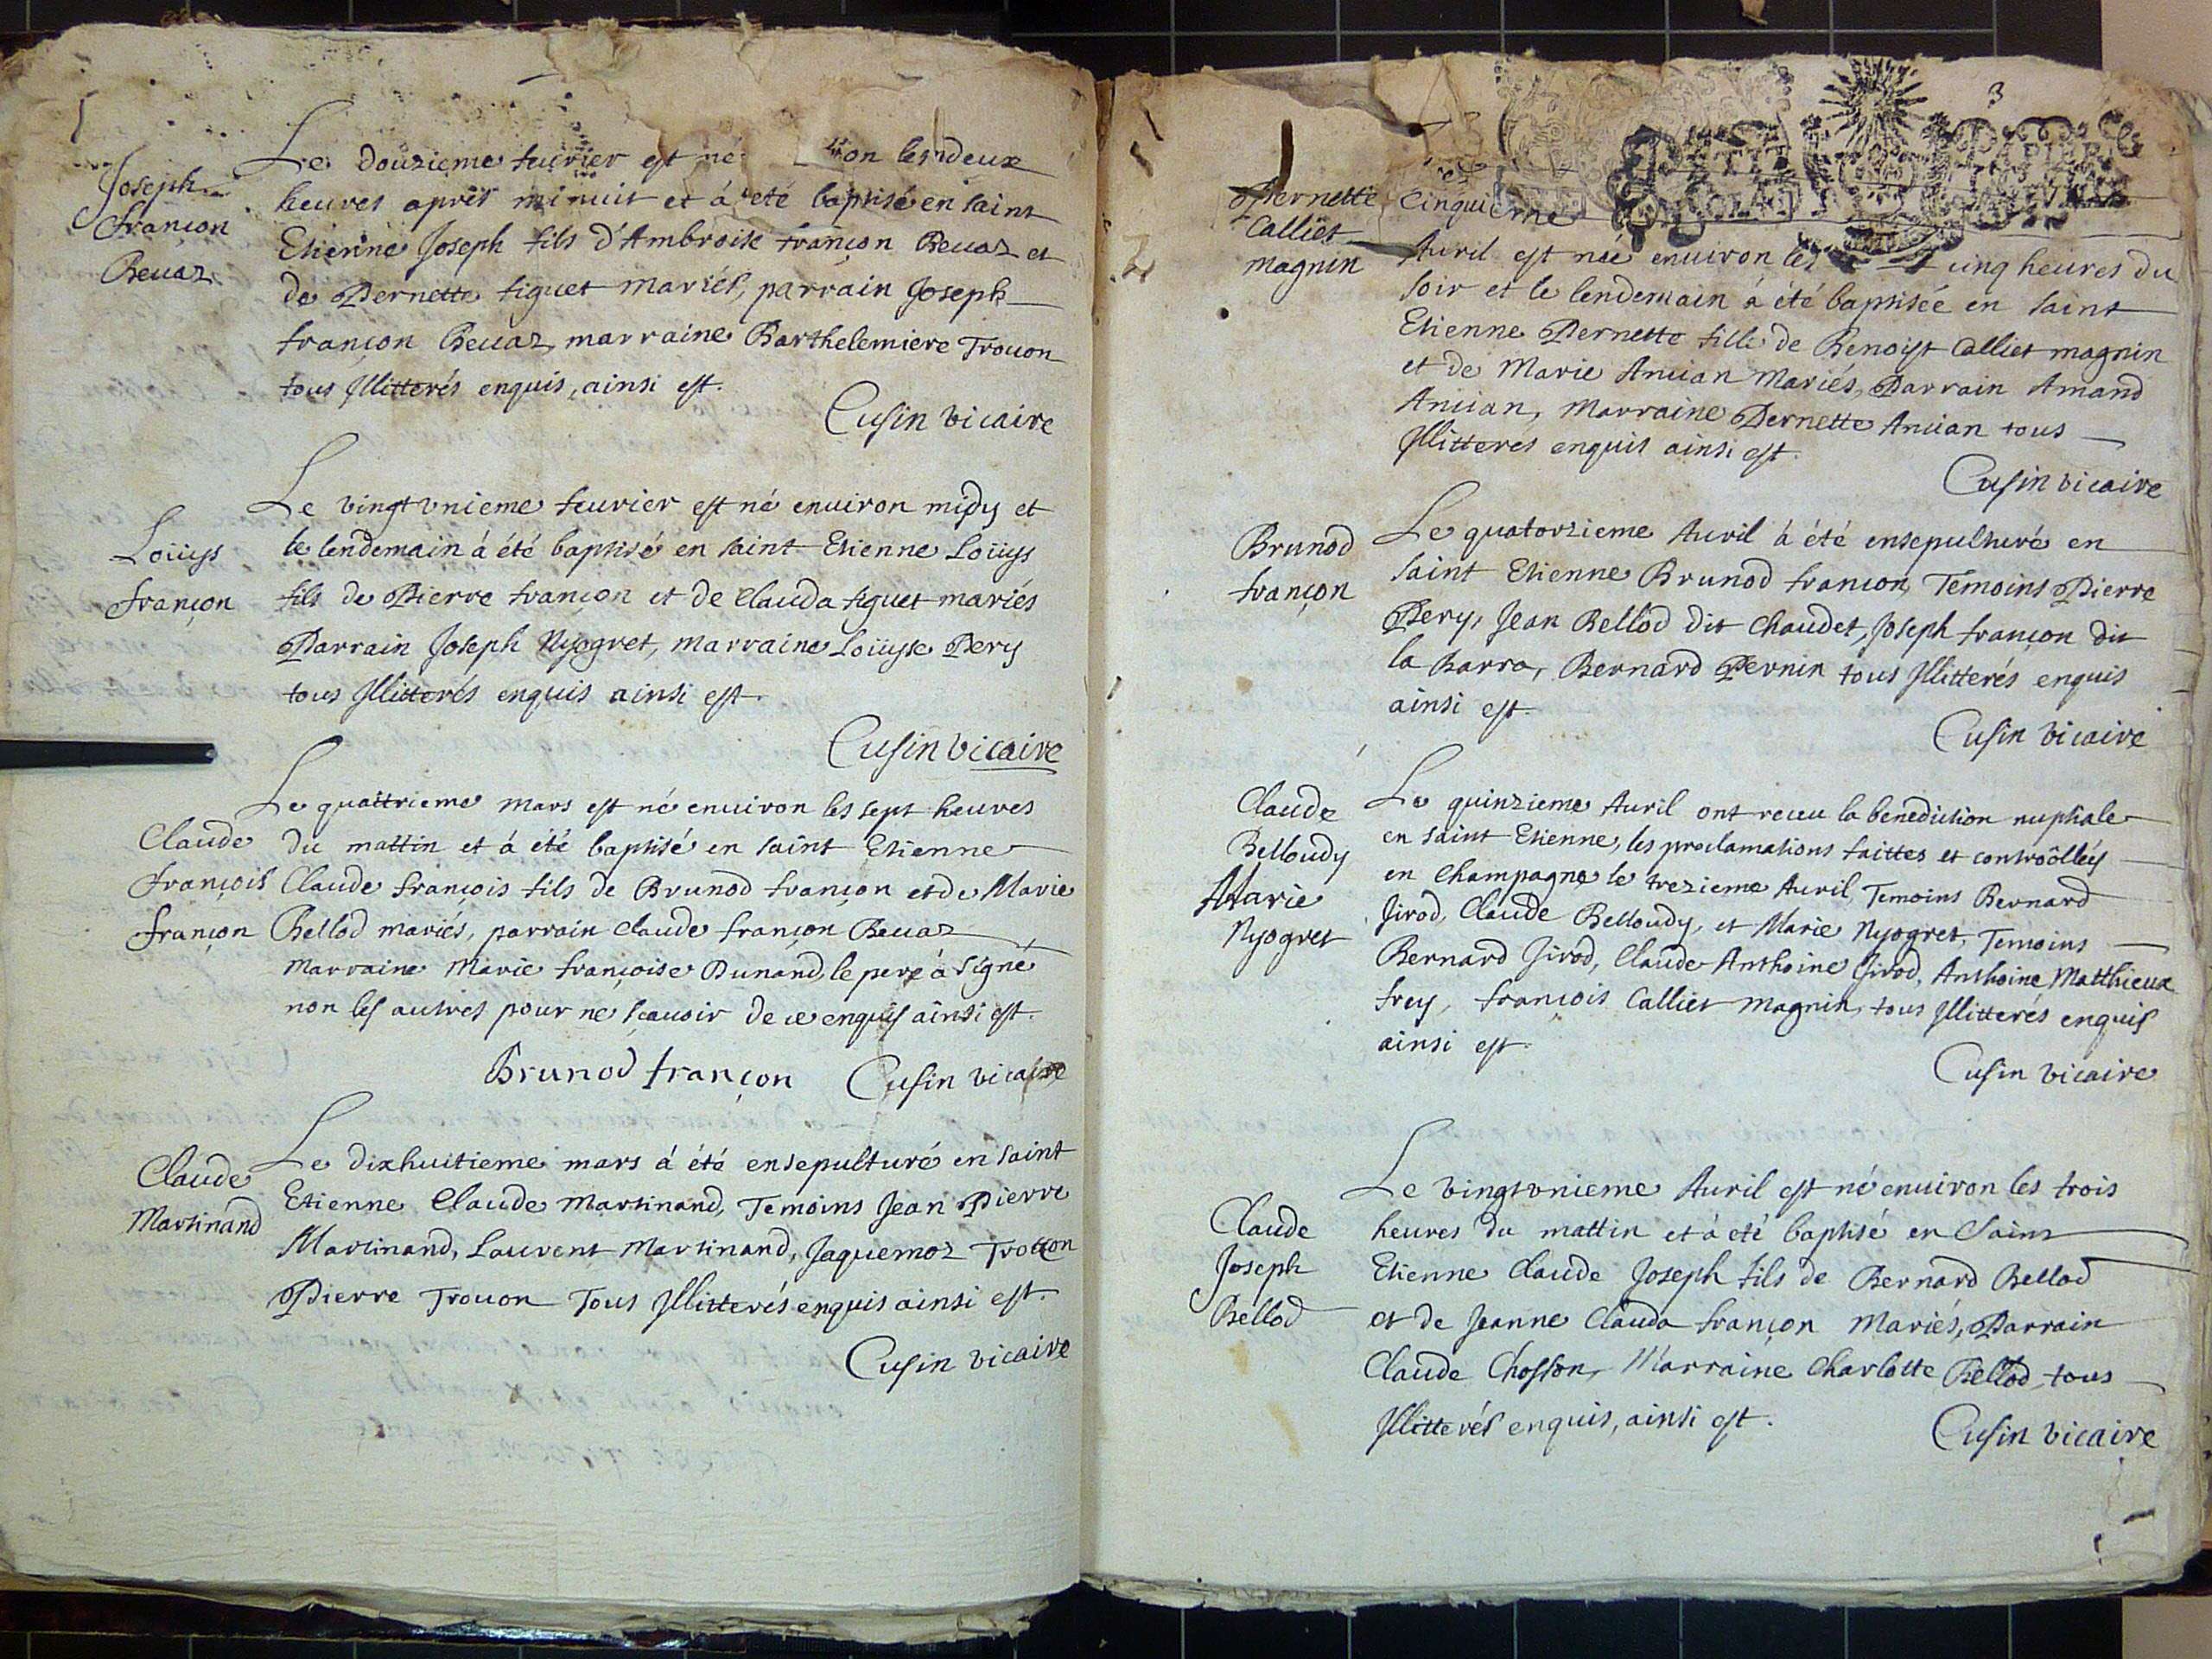 Joseph
françon
Reuaz
Le douzieme feurier est né on les deux
heures aprés minuit et á eté baptisé en saint
Etienne Joseph fils d'Ambroise françon Reuaz et
de Pernette figuet mariés, parrain Joseph
françon Reuaz, marraine Barthelemiere Trouon
tous Jllitterés enquis, ainsi est.
Cusin vicaire
Loüys
françon
Le vingtvnieme feurier est né enuiron midy et
le lendemain á été baptisé en saint Etienne Loüys
fils de Pierre françon et de Clauda figuet mariés
Parrain Joseph Nyogret, marraine Loüyse Pery
tous Jllitterés enquis ainsi est.
Cusin vicaire
Claude
françois
françon
Le quattrieme mars est né enuiron les sept heures
du mattin et á été baptisé en saint Etienne
Claude françois fils de Brunod françon et de Marie
Bellod mariés, parrain Claude françon Reuaz
marraine Marie françoise Dunand, le pere á signé
non les autres pour ne scauoir de ce enquis ainsi est.
Brunod françon Cusin vicaire
Claude
Martinand
Le dixhuitieme mars á été ensepulturé en saint
Etienne Claude Martinand, Temoins Jean Pierre
Martinand, Laurent Martinand, Jaquemoz Trouon
Pierre Trouon Tous Jllitterés enquis ainsi est.
Cusin vicaire
3
Pernette
Calliet
magnin
Cinquieme
Auril est née enuiron les cinq heures du
soir et le lendemain á été baptisée en saint
Etienne Pernette fille de Benoist Calliet magnin
et de Marie Ancian Mariés, Parrain Amand
Ancian, Marraine Pernette Ancian tous
Jllitteres enquis ainsi est.
Cusin vicaire
Brunod
françon
Le quatorzieme Auril á été ensepulturé en
saint Etienne Brunod françon, Temoins Pierre
Pery, Jean Bellod dit Chaudet, Joseph françon dit
la Barra, Bernard Pernin tous Jllitterés enquis
ainsi est.
Cusin vicaire
Claude
Belloudy
Marie
Nyogret
Le quinzieme Auril ont receu la benediction nuptiale
en saint Etienne, les proclamations faittes et controôlléy
en Champagne le trezieme Auril, Temoins Bernard
Jirod, Claude Belloudy, et Marie Nyogret, Temoins
Bernard Jirod, Claude Anthoine Jirod, Anthoine Matthieux
frey, françois Calliet magnin, tous Jllitterés enquis
ainsi est.
Cusin vicaire
Claude
Joseph
Bellod
Le vingtvnieme Auril est né enuiron les trois
heures du mattin et á eté baptisé en Saint
Etienne Claude Joseph fils de Bernard Bellod
et de Jeanne Clauda françon Mariés, Parrain
Claude Chosson, Marraine Charlotte Bellod, tous
Jllitterés enquis, ainsi est.
Cusin vicaire